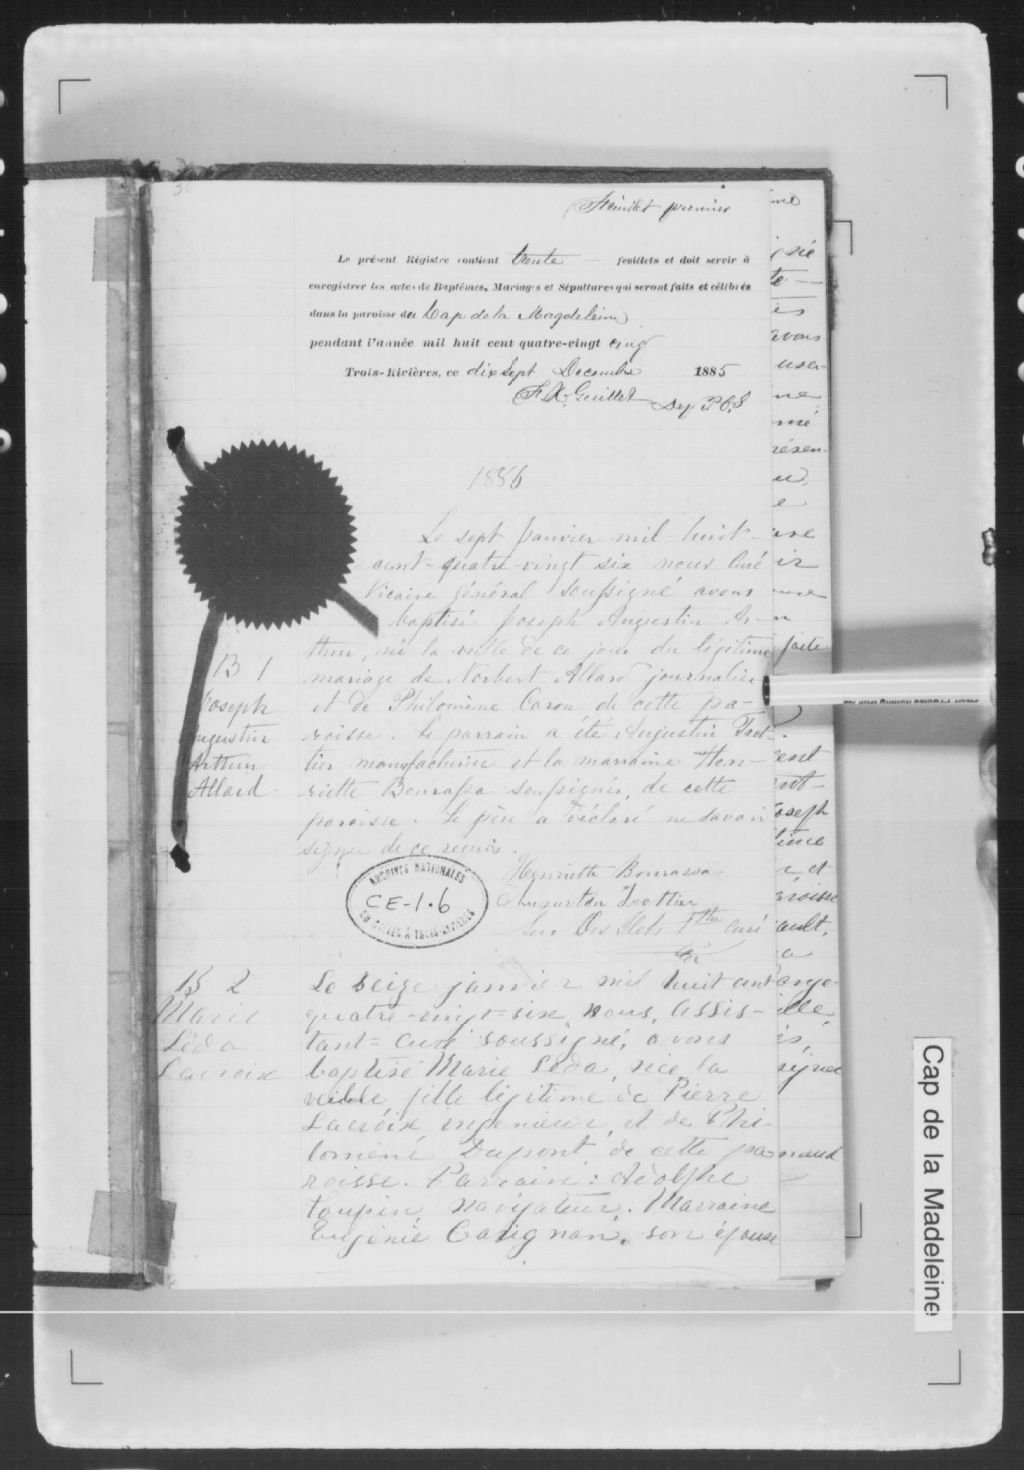 Feuillet premier
Le présent Régistre contient trente feuillets et doit servir à
enregistrer les actes de Baptêmes, Mariages et Sépultures qui seront faits et célébrés
dans la paroisse du Cap de la Magdeleine
pendant l'année mil huit cent quatre-vingt cinq
Trois-Rivières, ce dix Sept Decembre 1885
F. X. Guillet Dep P.C.S
1886
Le sept Janvier mil-huit-
cent-quatre-vingt six nous Curé
Vicaire général soussigné avons
baptisé Joseph Augustin Ar-
thur, né la veille de ce jour du légitime
mariage de Norbert Allard journalier
et de Philomène Caron de cette pa-
roisse. Le parrain a été Augustin Trot-
tier manufacturier et la marraine Hen-
riette Bourassa soussignés, de cette
paroisse. Le père a déclaré ne savoir
signer de ce requis.
Henriette Bourassa
Augustin Trottier
Luc Des Ilets Ptre curé
B 1
Joseph
Augustin
Arthur
Allard
ARCHIVES NATIONALES
CE-1.6
DU QUÉBEC À TROIS-RIVIÈRES
B 2
Marie
Léda
Lacroix
Le seize janvier mil huit cent
quatre-vingt=six, nous, assis-
tant=curé soussigné, avons
baptisé Marie Léda, née la
veille, fille légitime de Pierre
Lacroix ingénieur, et de Phi-
lomène Dupont de cette pa-
roisse. Parrain: Adolphe
Toupin navigateur. Marraine
Eugénie Carignan, son épouse
Cap de la Madeleine